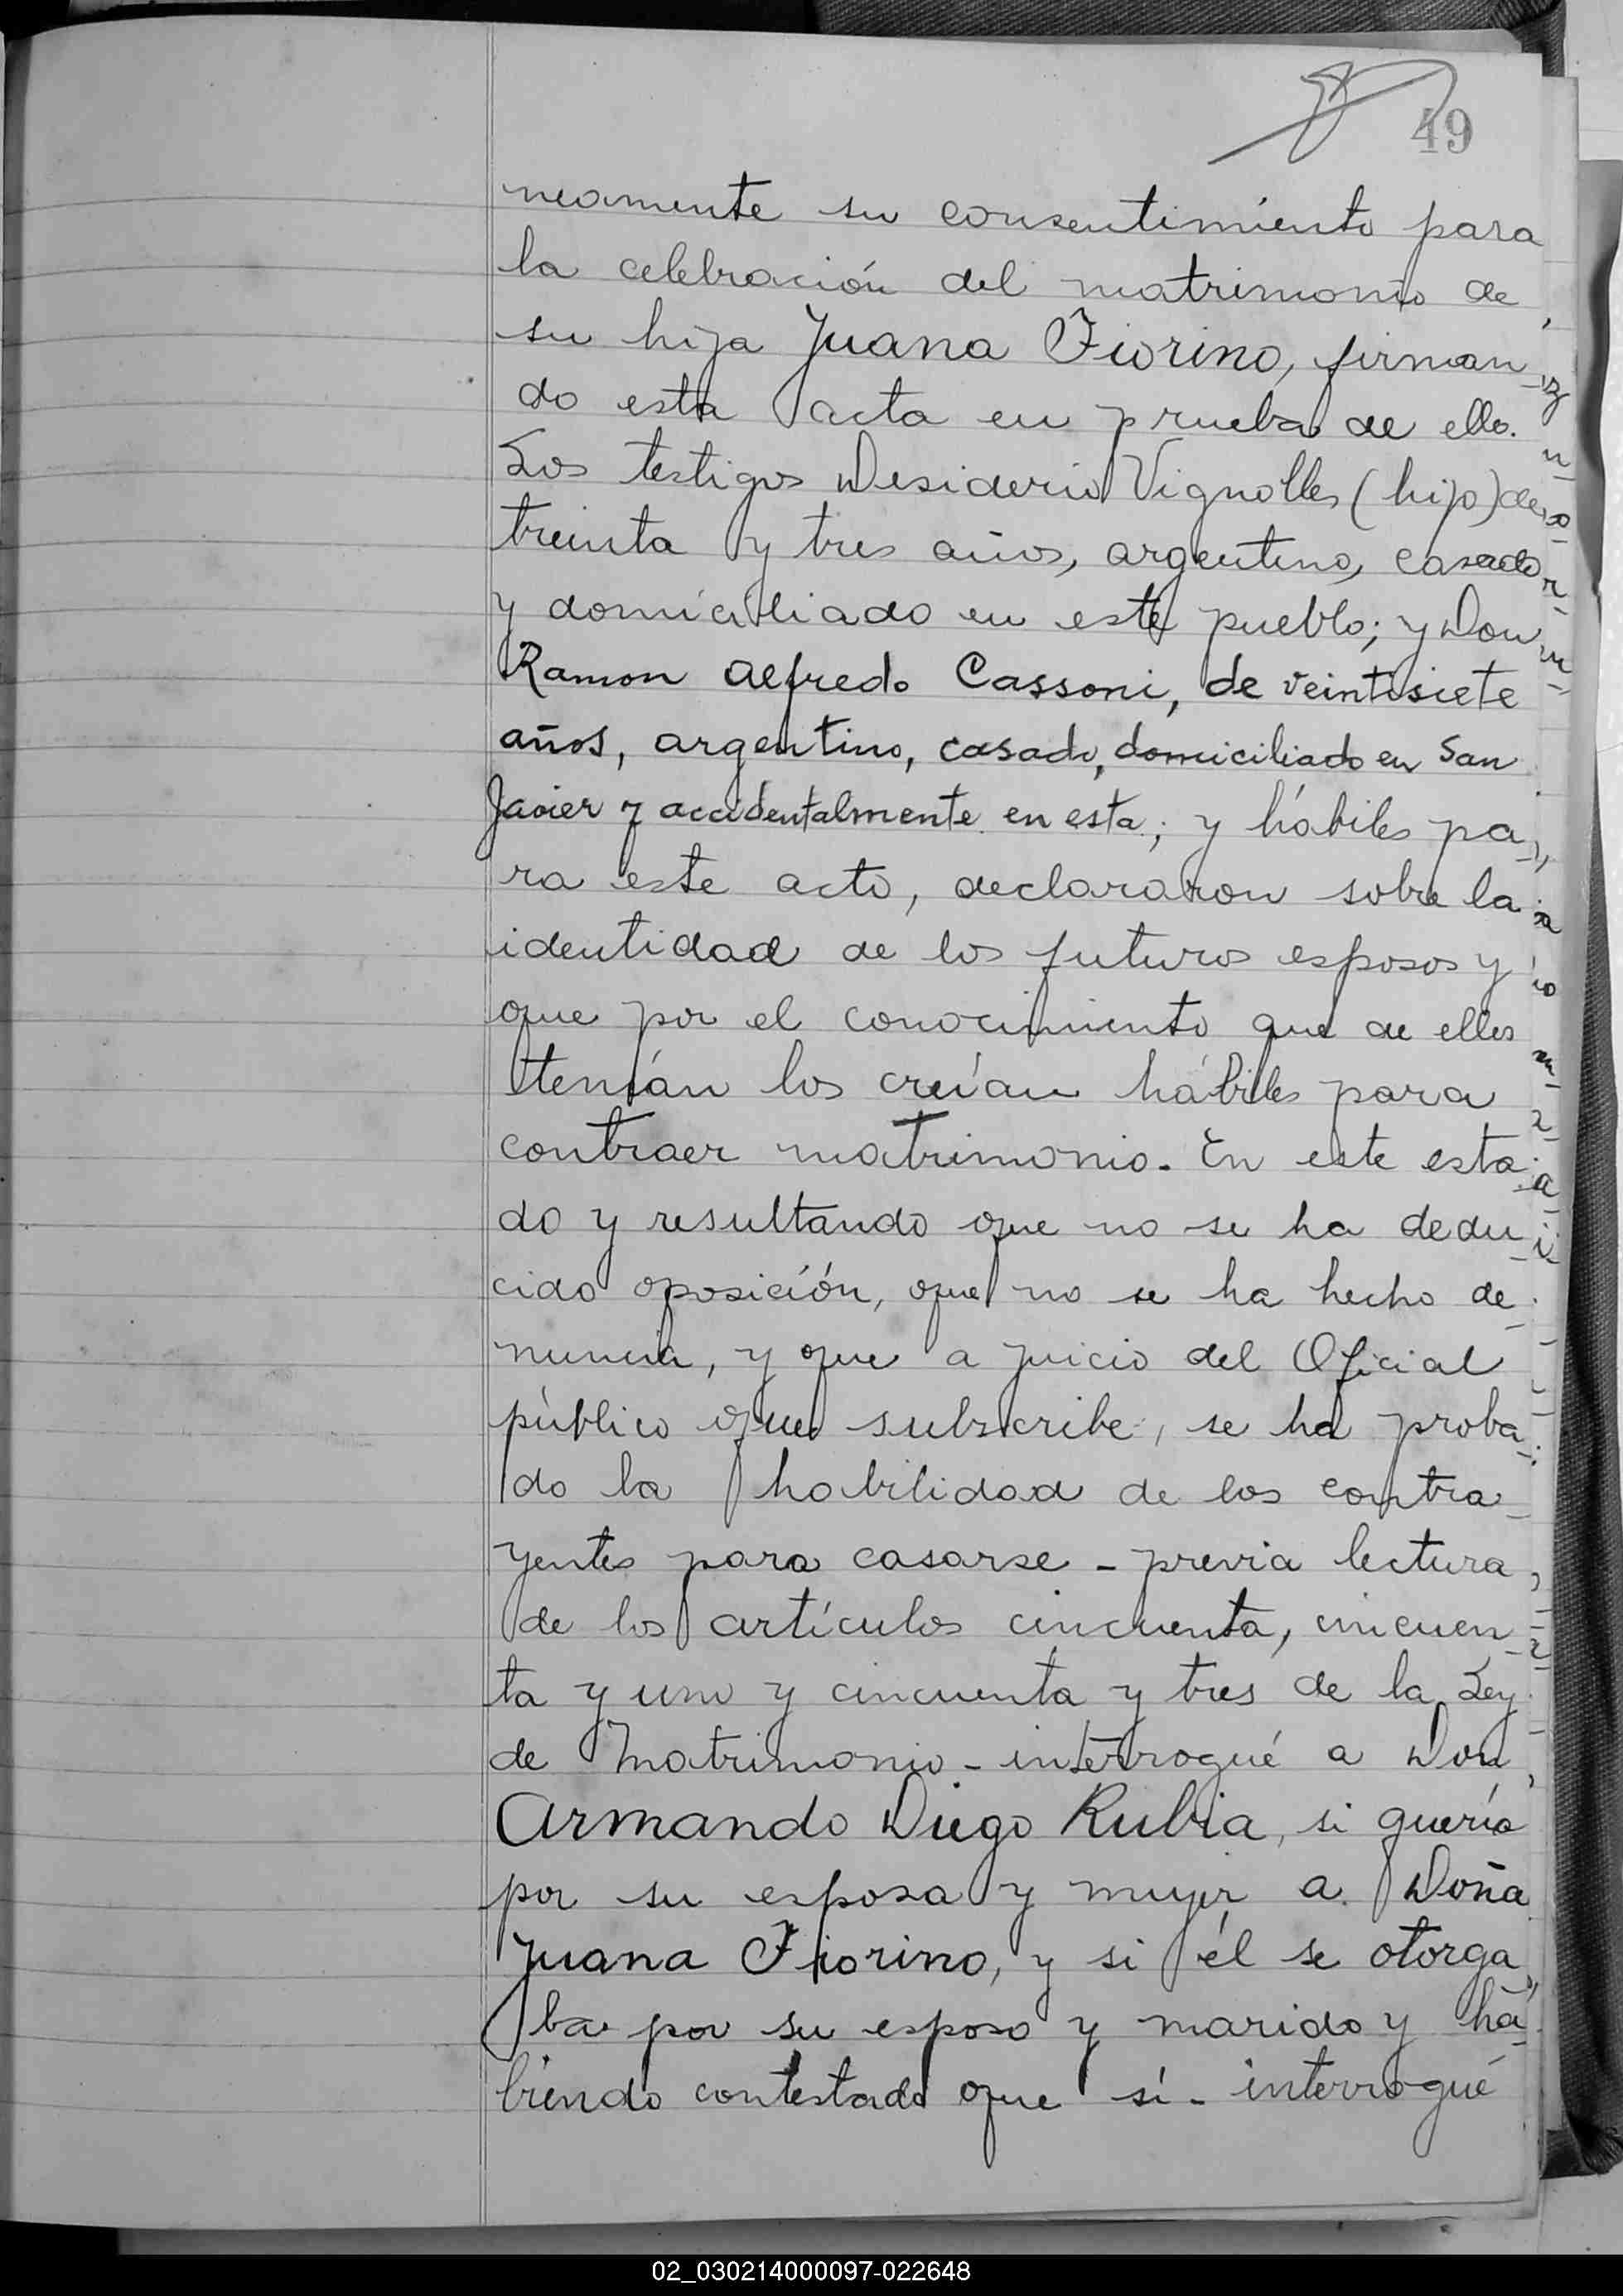 49
neamente su consentimiento para
la celebración del matrimonio de
su hija Juana Fiorino, firman
do esta acta en prueba de ello.
Los testigos Desiderio Vignolles (hijo) de
treinta y tres años, argentino, casado
y domiciliado en este pueblo; y Don
Ramon Alfredo Cassoni, de veintisiete
años, argentino, casado, domiciliado en San
Javier y accidentalmente en esta; y hábiles pa-
ra este acto, declararon sobre la
identidad de los futuros esposos y
que por el conocimiento que de ellos
tenían los creían hábiles para
contraer matrimonio. En este esta
do y resultando que no se ha dedu-
cido oposición, que no se ha hecho de-
nuncia, y que a juicio del Oficial
público que subscribe, se ha proba-
do la habilidad de los contra-
yentes para casarse - previa lectura
de los artículos cincuenta, cincuen-
ta y uno y cincuenta y tres de la Ley
de Matrimonio - interrogué a Don
Armando Diego Rubia, si quería
por su esposa y mujer a Doña
Juana Fiorino, y si él se otorga
ba por su esposo y marido y ha-
biendo contestado que sí - interrogué
02_030214000097-022648